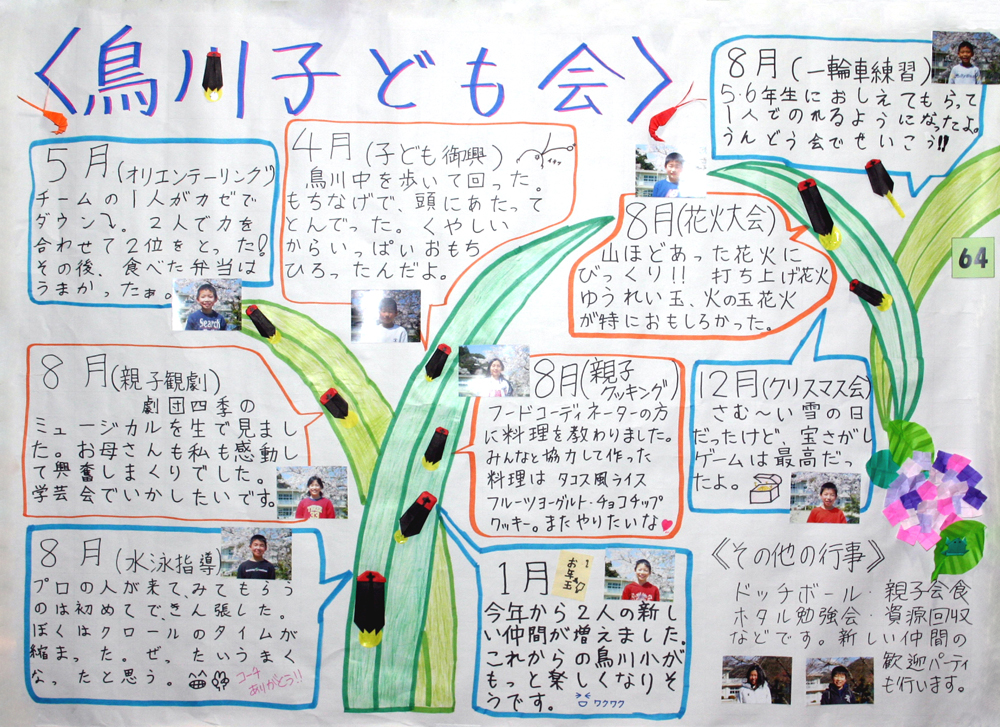 〈鳥川子ども会〉
8月(一輪車練習)
5・6年生におしえてもらって
1人でのれるようになったよ。
うんどう会でせいこう!!
5月(オリエンテーリング)
チームの1人がカゼで
ダウン。2人で力を
合わせて2位をとった!
その後、食べた弁当は
うまかったぁ。
4月(子ども御輿)
鳥川中を歩いて回った。
もちなげで、頭にあたって
とんでった。くやしい
からいっぱいおもち
ひろったんだよ。
8月(花火大会)
山ほどあった花火に
びっくり!! 打ち上げ花火
ゆうれい玉、火の玉花火
が特におもしろかった。
64
8月(親子観劇)
劇団四季の
ミュージカルを生で見まし
た。お母さんも私も感動し
て興奮しまくりでした。
学芸会でいかしたいです。
8月(親子クッキング)
フードコーディネーターの方
に料理を教わりました。
みんなと協力して作った
料理は タコス風ライス
フルーツヨーグルト・チョコチップ
クッキー。またやりたいな
12月(クリスマス会)
さむ〜い雪の日
だったけど、宝さがし
ゲームは最高だっ
たよ。
8月(水泳指導)
プロの人が来て、みてもらう
のは初めてで、きん張した。
ぼくはクロールのタイムが
縮まった。ぜったいうまく
なったと思う。
コーチ
ありがとう!!
1月
お年玉
今年から2人の新し
い仲間が増えました。
これからの鳥川小が
もっと楽しくなりそ
うです。
ワクワク
《その他の行事》
ドッチボール・親子会食
ホタル勉強会・資源回収
などです。新しい仲間の
歓迎パーティ
も行います。
Search